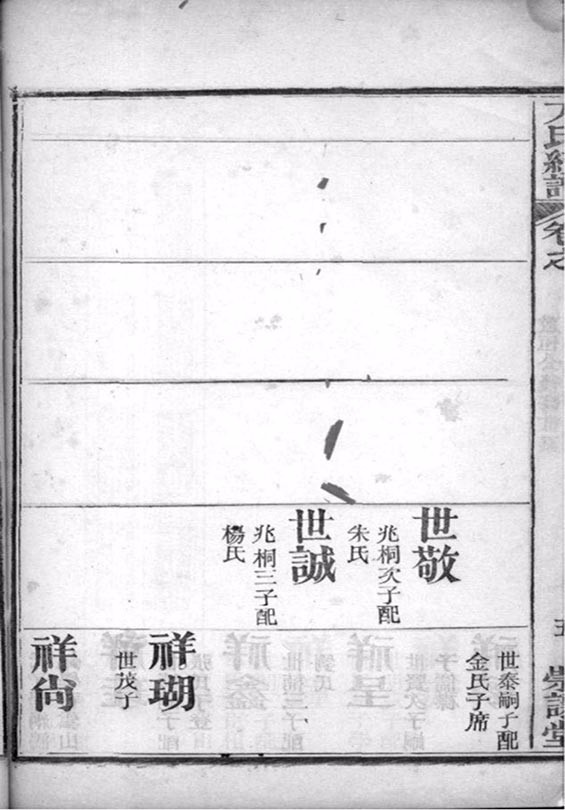 卷之
五
世敬
兆桐次子配
朱氏
世誠
兆桐三子配
楊氏
世泰嗣子配
金氏子席
祥瑚
世茂子
祥尚